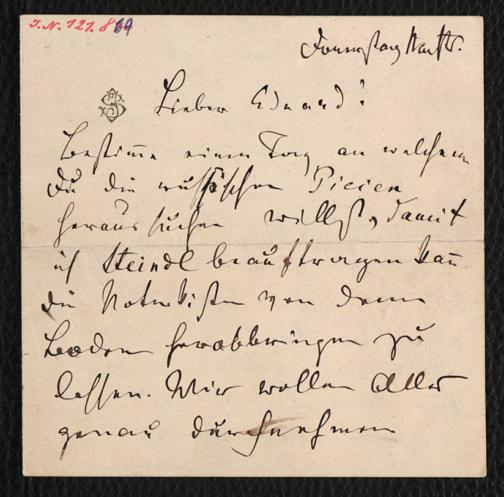 I.N. 121.869
Donnerstag Nachts.
JS
Lieber Eduard!
Bestimme einen Tag an welchem
Du die russischen Piecien
heraus suchen willst, damit
ich Steindl beauftragen kann
die Notenkisten von dem
Boden herabbringen zu
lassen. Wir wollen Alles
genau durchnehmen